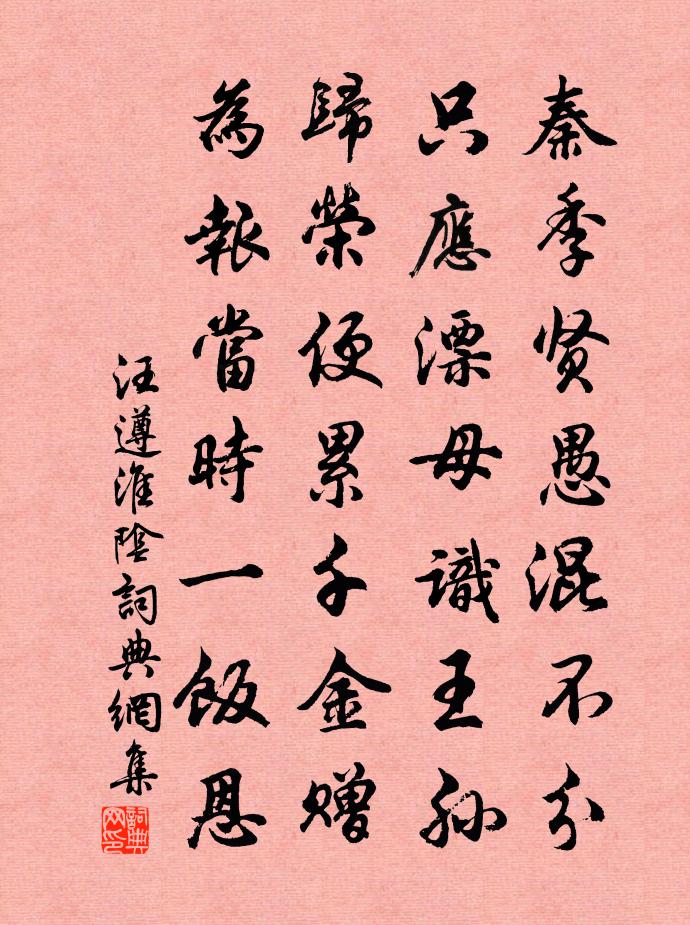 秦季贤愚混不分
只應漂母識王孙
歸榮便累千金赠
為報當時一飯恩
汪遵淮陰詞典網集
詞典网印